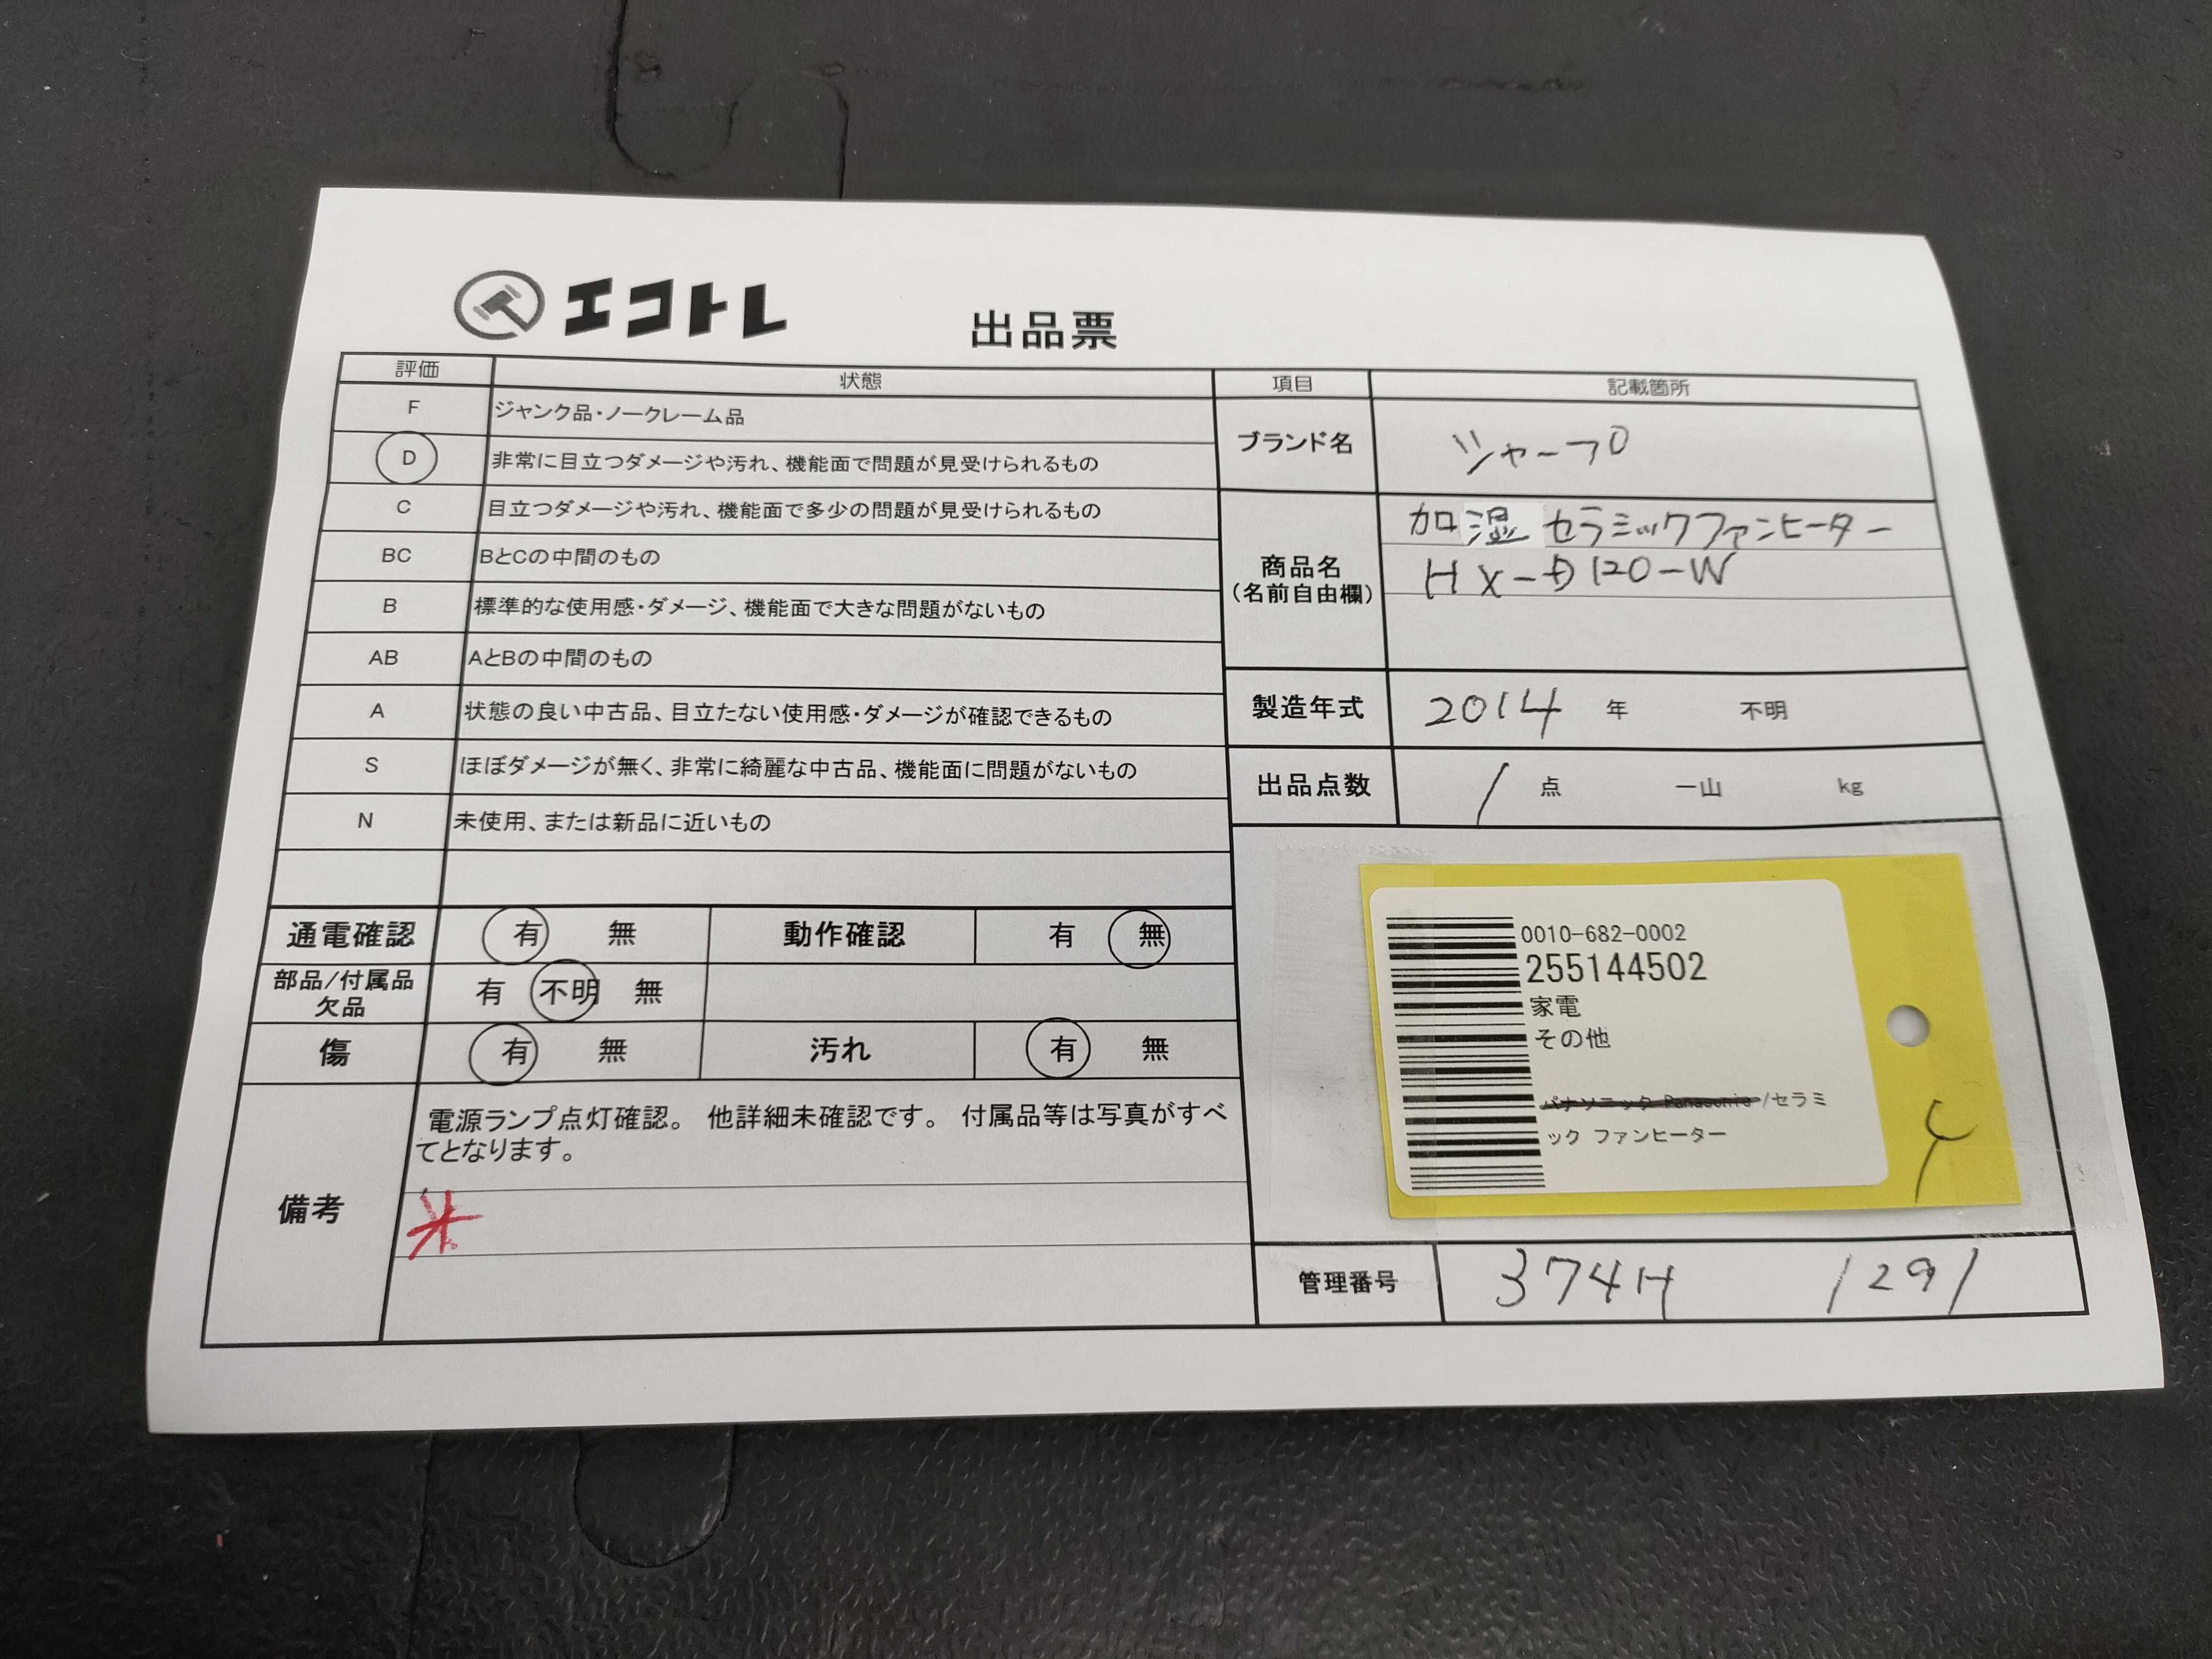 エコトレ
出品票
評価 状態
F ジャンク品・ノークレーム品
D 非常に目立つダメージや汚れ、機能面で問題が見受けられるもの
C 目立つダメージや汚れ、機能面で多少の問題が見受けられるもの
BC BとCの中間のもの
B 標準的な使用感・ダメージ、機能面で大きな問題がないもの
AB AとBの中間のもの
A 状態の良い中古品、目立たない使用感・ダメージが確認できるもの
S ほぼダメージが無く、非常に綺麗な中古品、機能面に問題がないもの
N 未使用、または新品に近いもの
通電確認 有 無 動作確認 有 無
部品/付属品
欠品
有 不明 無
傷 有 無 汚れ 有 無
備考
電源ランプ点灯確認。 他詳細未確認です。 付属品等は写真がすべ
てとなります。
項目 記載箇所
ブランド名 シャープ
商品名
(名前自由欄)
加湿セラミックファンヒーター
HX-D120-W
製造年式 2014 年 不明
出品点数 1 点 一山 kg
0010-682-0002
255144502
家電
その他
パナソニック Panasonic/セラミ
ック ファンヒーター
管理番号 374H 1291